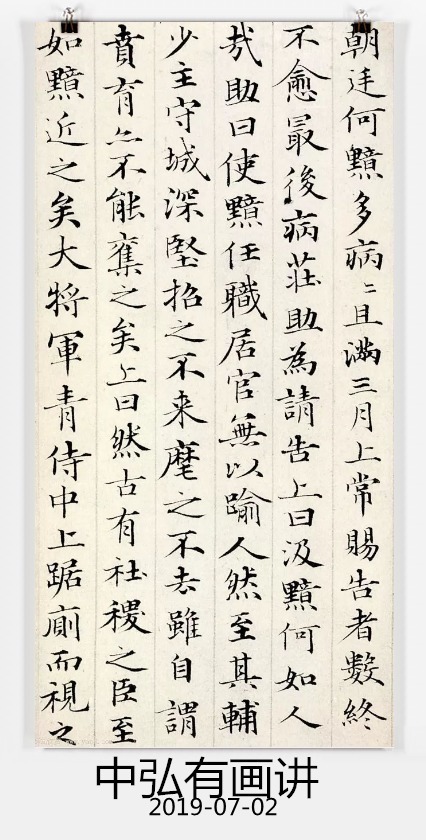 朝廷何黯多病〻且滿三月上常賜告者數終
不愈最後病莊助為請告上曰汲黯何如人
㢤助曰使黯任職居官無以踰人然至其輔
少主守城深堅招之不来麾之不去雖自謂
賁育亦不能奪之矣上曰然古有社稷之臣至
如黯近之矣大將軍青侍中上踞廁而視之
中弘有画讲
2019-07-02